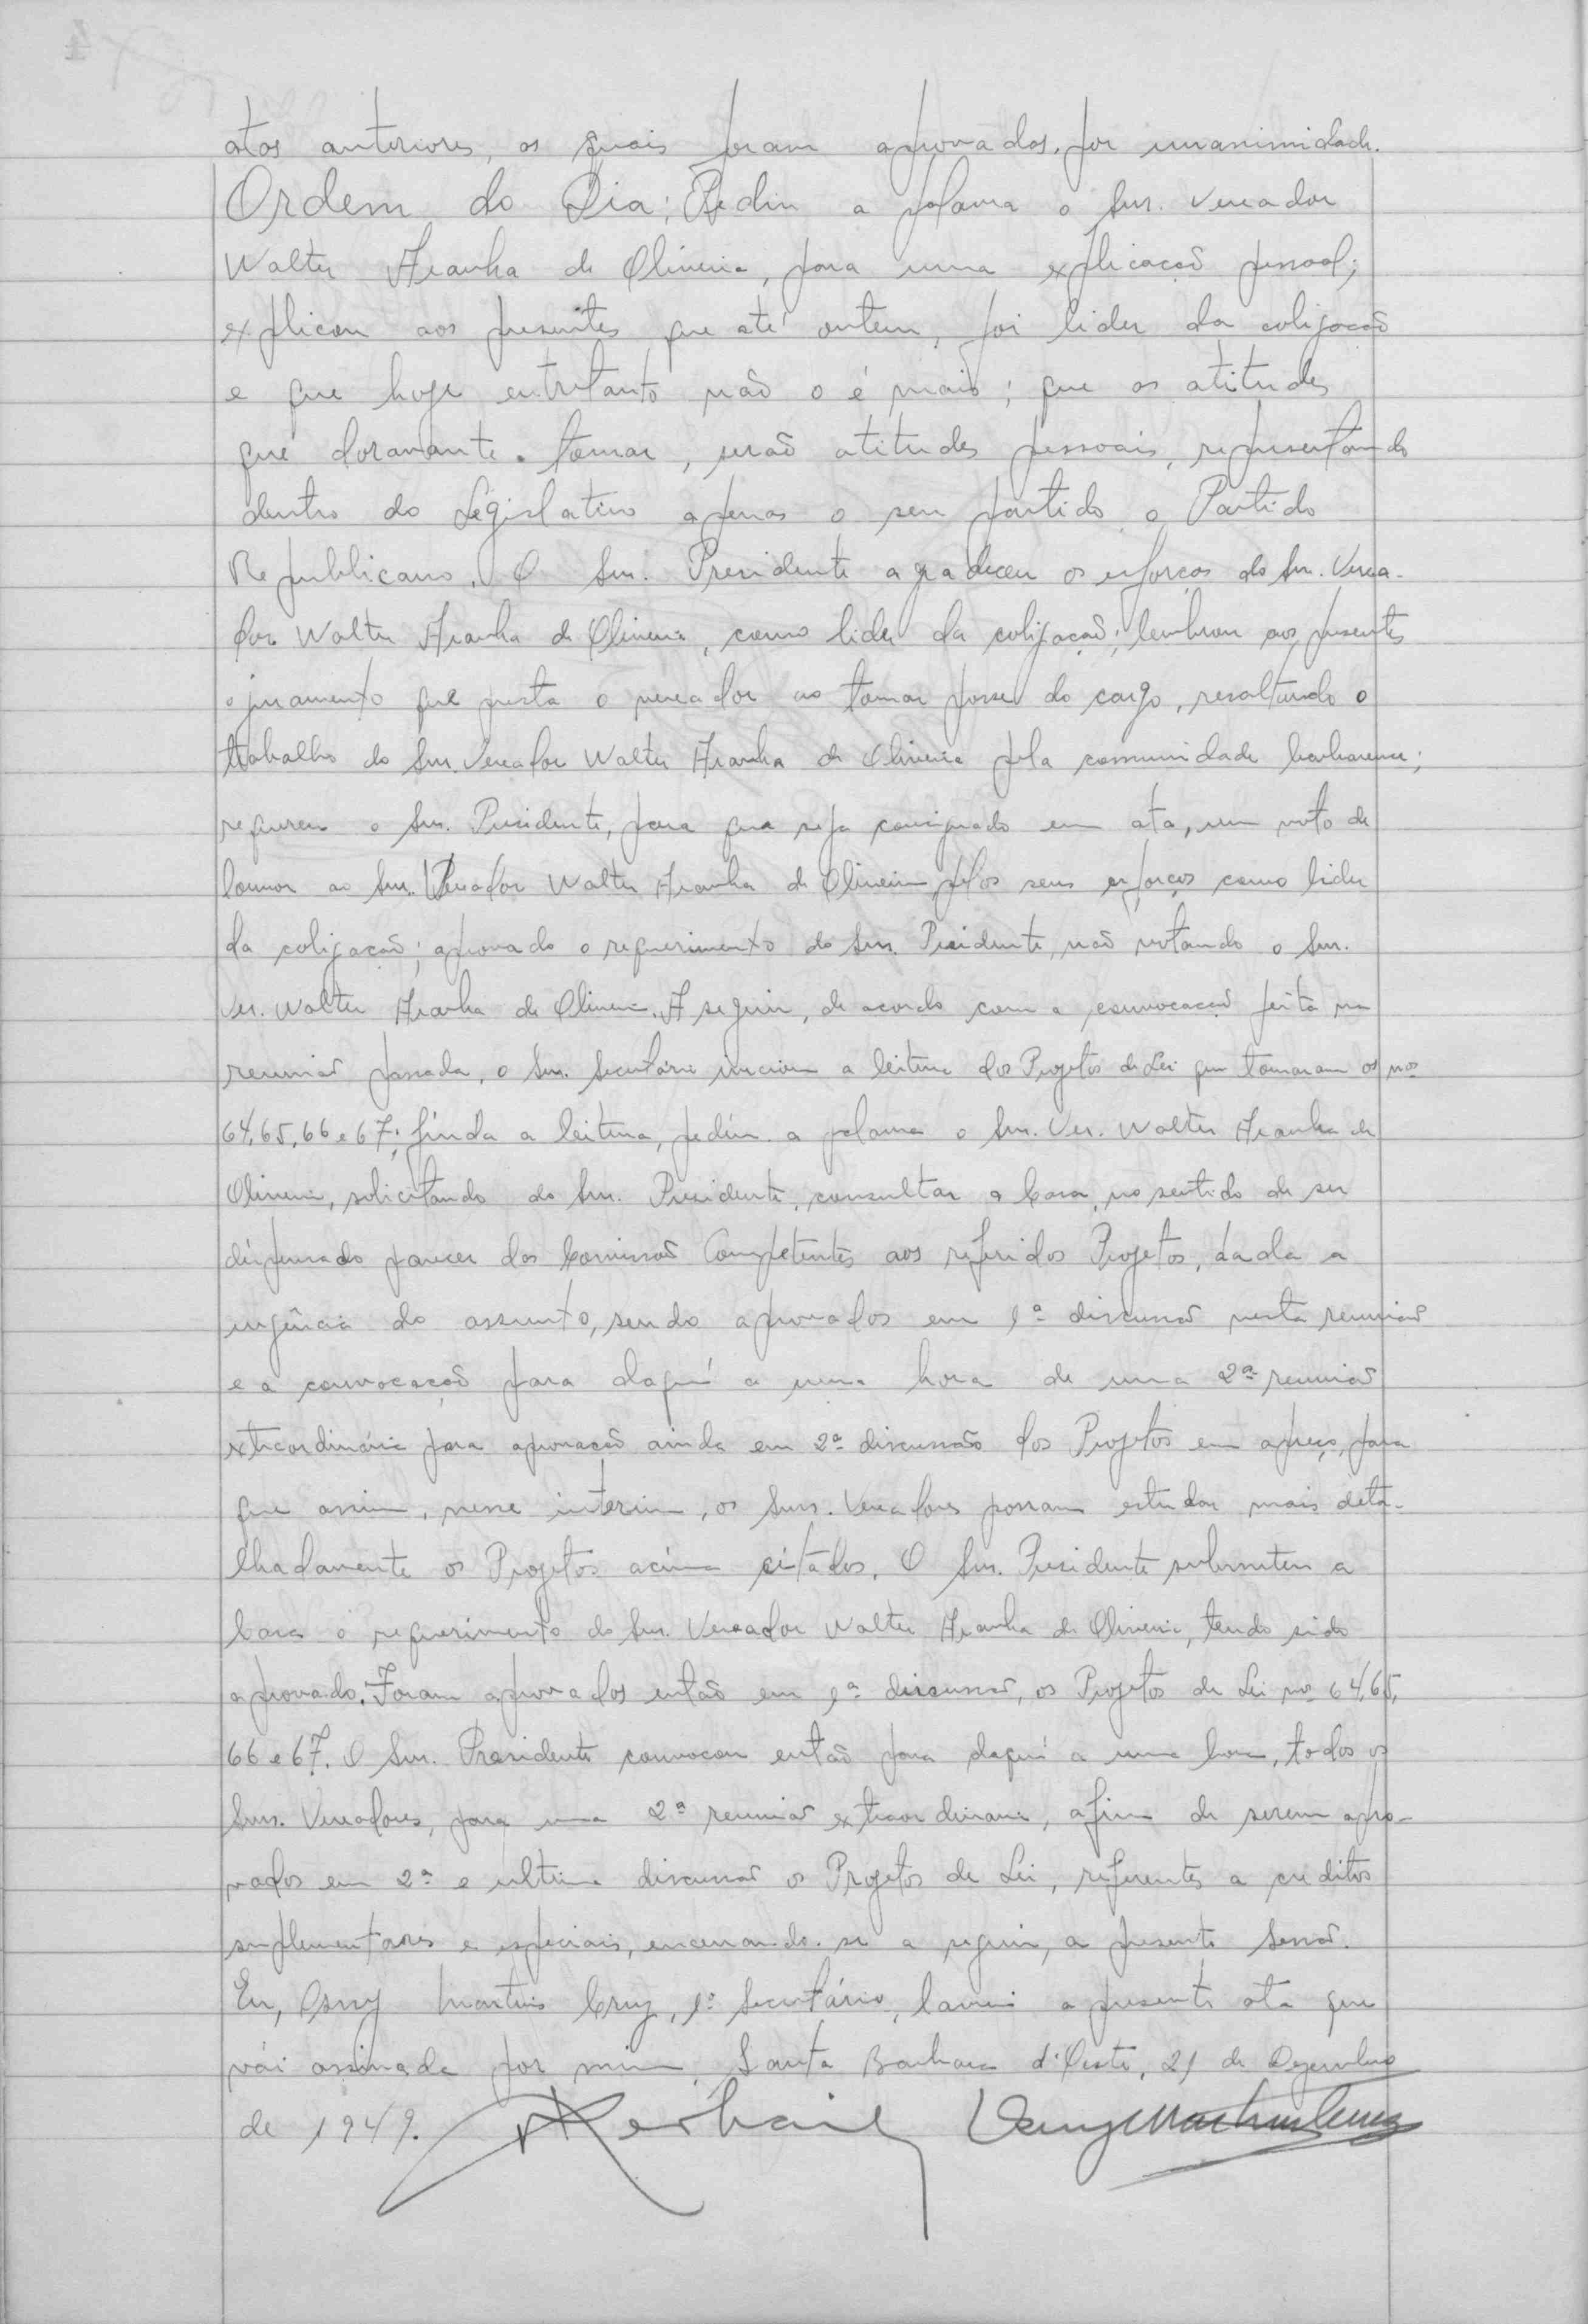 atas anteriores, as quais foram aprovadas, por unanimidade.
Ordem do Dia: Pediu a palavra o Snr. Vereador
Walter Aranha de Oliveira, para uma explicação pessoal;
explicou aos presentes que até ontem, foi lider da coligação
e que hoje entretanto não o é mais; que as atitudes
que doravante tomar, serão atitudes pessoais, representando
dentro do Legislativo apenas o seu partido o Partido
Republicano. O Snr. Presidente agradeceu os esforços do Sr. Verea-
dor Walter Aranha de Oliveira, como lider da coligação; lembrou aos presentes
o juramento que presta o vereador ao tomar posse do cargo, resaltando o
trabalho do Snr. Vereador Walter Aranha de Oliveira pela comunidade barbarense;
requereu o Snr. Presidente, para que seja consignado em ata, um voto de
louvor ao Snr. Vereador Walter Aranha de Oliveira pelos seus esforços como lider
da coligação; aprovado o requerimento do Snr. Presidente, não votando o Snr.
Ver. Walter Aranha de Oliveira. A seguir, de acordo com a convocação feita na
reunião passada, o Snr. Secretário iniciou a leitura dos Projetos de Lei que tomaram os nos
64, 65, 66 e 67; finda a leitura, pediu a palavra o Snr. Ver. Walter Aranha de
Oliveira, solicitando do Snr. Presidente, consultar a Casa, no sentido de ser
dispensado parecer das Comissão Competentes aos referidos Projetos, dada a
urgência do assunto, sendo aprovados em 1ª discussão nesta reunião
e a convocação para daquí a uma hora de uma 2ª reunião
extraordinária para aprovação ainda em 2ª discussão dos Projetos em apreço, para
que assim, nesse interim, os Snrs. Vereadores possam estudar mais deta-
lhadamente os Projetos acima citados. O Snr. Presidente submeteu a
Casa o requerimento do Snr. Vereador Walter Aranha de Oliveira, tendo sido
aprovado. Foram aprovados então em 1ª discussão, os Projetos de Lei nos 64, 65,
66 e 67. O Snr. Presidente convocou então para daquí a uma hora, todos os
Snrs. Vereadores, para uma 2ª reunião extraordinaria, afim de serem apro-
vados em 2ª e ultima discussão os Projetos de Lei, referentes a creditos
suplementares e especiais, encerrando-se a seguir, a presente sessão.
Eu, Osny Martins Cruz, 1º Secretário, lavrei a presente ata que
vái assinada por mim. Santa Barbara d'Oeste, 21 de Dezembro
de 1949. Osny Martins Cruz